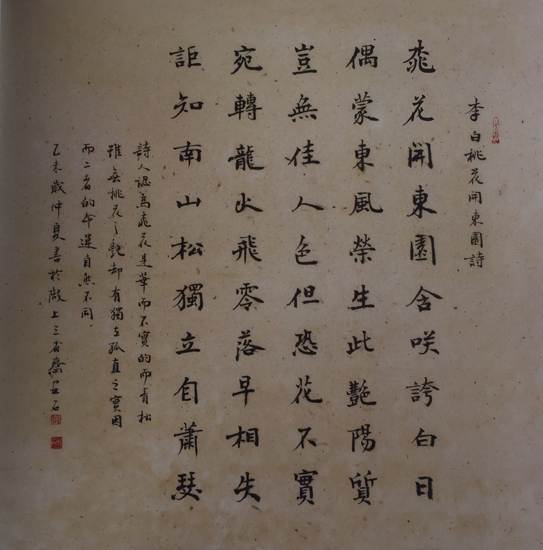 李白桃花開東園詩
桃花開東園含咲誇白日
偶蒙東風榮生此艷陽質
豈無佳人色但恐花不實
宛轉龍火飛零落早相失
詎知南山松獨立自蕭瑟
詩人認為桃花是華而不實的而青松
雖無桃花之艷却有獨立孤直之實因
而二者的命運自然不同
乙未歲仲夏書於殿上三省齋